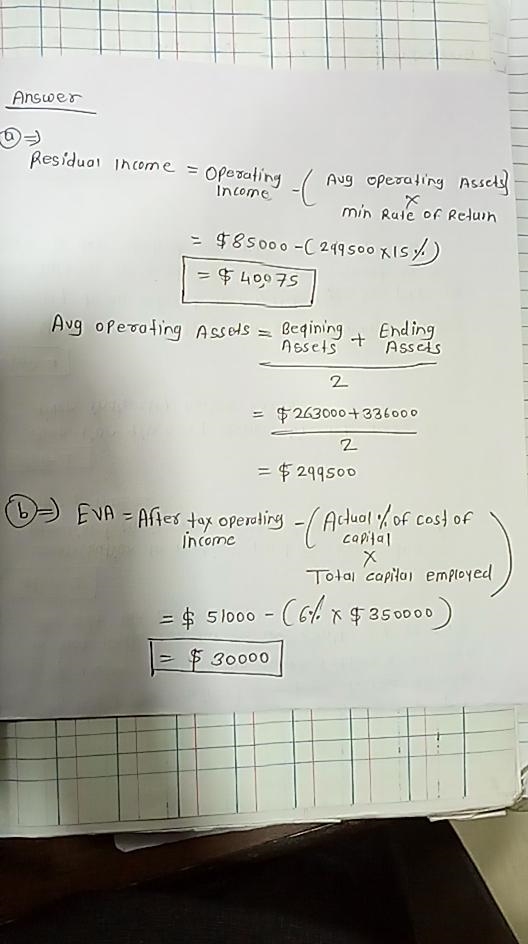 Answer
(a) ⇒
Residual income = Operating Income - ( Avg operating Assets × min Rate of Return )
= $85000 - ( 299500 × 15% )
= $40,075
Avg operating Assets = Begining Assets + Ending Assets
2
= $263000 + 336000
2
= $299500
(b) ⇒ EVA = After tax operating income - ( Actual % of cost of capital × Total capital employed )
= $51000 - ( 6% × $350000 )
= $30000